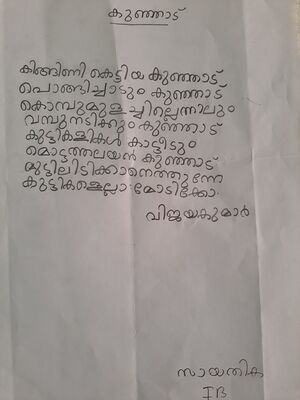 കുഞ്ഞാട്
കിങ്ങിണി കെട്ടിയ കുഞ്ഞാട്
പൊങ്ങിച്ചാടും കുഞ്ഞാട്
കൊമ്പുമുളച്ചില്ലെന്നാലും
വമ്പുനടിക്കും കുഞ്ഞാട്
കുട്ടികളികൾ കാട്ടീടും
മൊട്ടത്തലയൻ കുഞ്ഞാട്
മുട്ടിലിടിക്കാനെത്തുന്നേ
കുട്ടികളെല്ലാംമോടിക്കോ.
വിജയകുമാർ
സായതിക
IB